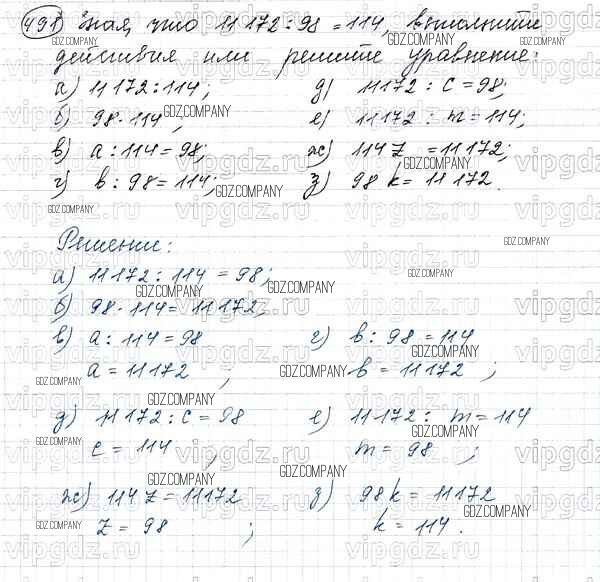 491 Зная, что 11 172 : 98 = 114, выполните
действия или решите уравнение:
а) 11172 : 114; д) 11172 : c = 98;
б) 98 · 114; е) 11172 : m = 114;
в) a : 114 = 98; ж) 114 z = 11172;
г) b : 98 = 114; з) 98 k = 11172.
Решение:
а) 11172 : 114 = 98;
б) 98 · 114 = 11172;
в) a : 114 = 98 г) b : 98 = 114
a = 11172 ; b = 11172 ;
д) 11172 : c = 98 е) 11172 : m = 114
c = 114 ; m = 98 ;
ж) 114 z = 11172 з) 98 k = 11172
z = 98 ; k = 114.
GDZ.COMPANY
vipgdz.ru